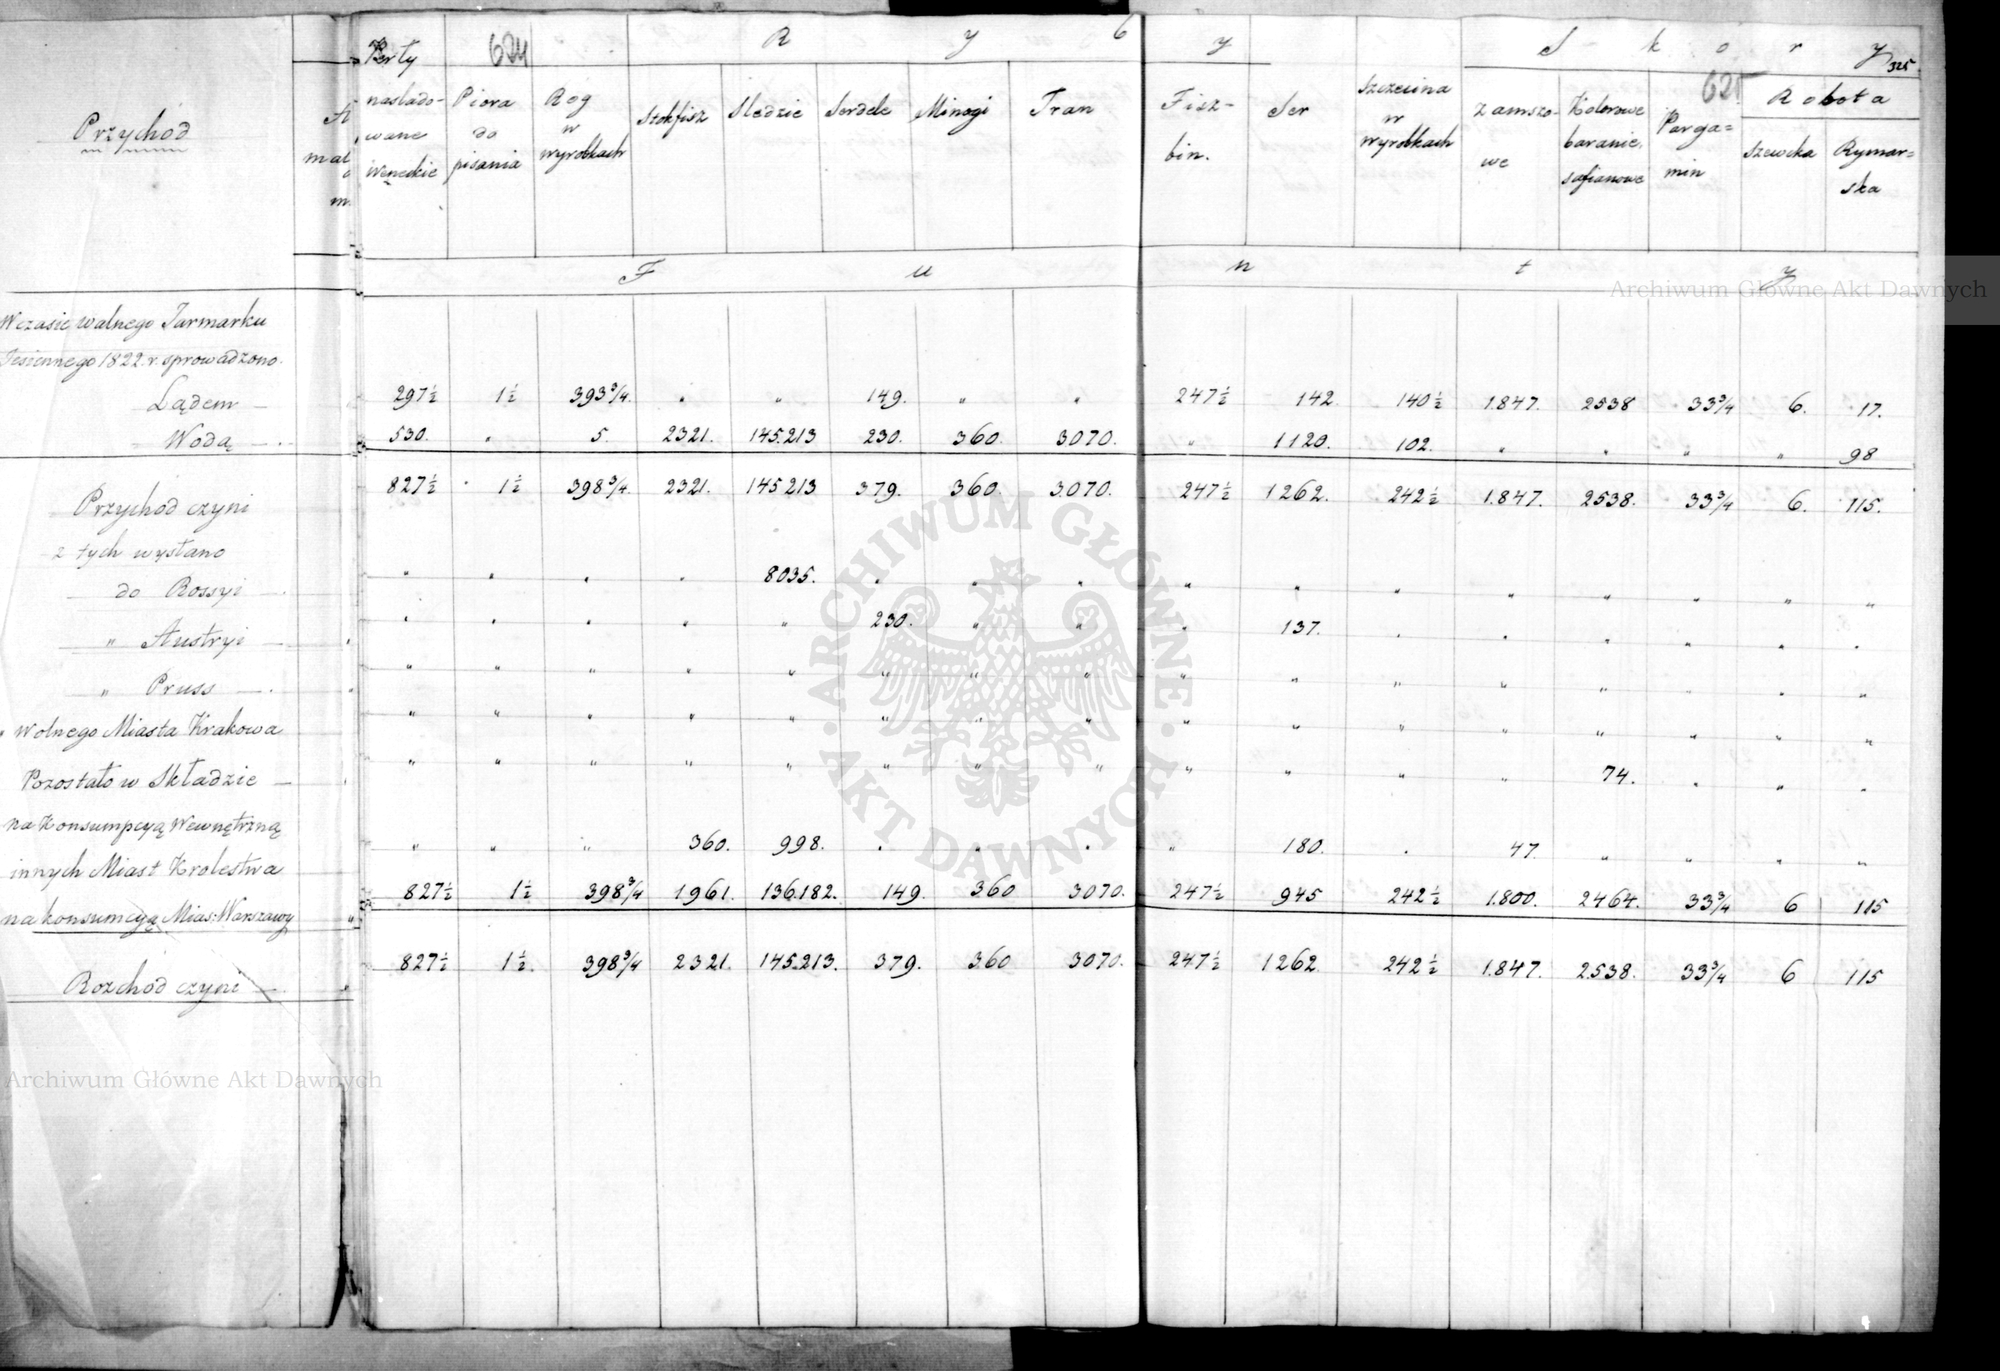 624
R y b y
S k o r y
325
625
Przychód
Perły naslado- wane weneckie
Piora do pisania
Rog w wyrobkach
Stokfisz
Sledzie
Serdele
Minogi
Tran
Fisz- bin.
Ser
Szczecina w wyrobkach
Zamszo- we
Kolorowe baranie, safianowe
Parga= min
Robota
szewcka
Rymar= ska
F u n t y
Wczasie walnego Jarmarku
Jesiennego 1822 r. sprowadzono.
Lądem — 297½ 1½ 393¾. „ „ 149. „ „ 247½ 142. 140½ 1.847. 2538 33¾ 6. 17.
Wodą — 530. „ 5. 2321. 145.213 230. 360. 3070. „ 1120. 102. „ „ „ „ 98
Przychód czyni 827½ 1½ 398¾. 2321. 145213 379. 360. 3.070. 247½ 1262. 242½ 1.847. 2538. 33¾ 6. 115.
z tych wysłano
do Rossyi — „ „ „ „ 8035. „ „ „ „ „ „ „ „ „ „ „
„ Austryi — „ „ „ „ „ 230. „ „ „ 137. „ „ „ „ „ „
„ Pruss — „ „ „ „ „ „ „ „ „ „ „ „ „ „ „ „
„ Wolnego Miasta Krakowa „ „ „ „ „ „ „ „ „ „ „ „ „ „ „ „
Pozostało w Składzie — „ „ „ „ „ „ „ „ „ „ „ „ 74. „ „ „
na Konsumpcyą Wewnętrzną
innych Miast Krolestwa „ „ „ 360. 998. „ „ „ „ 180. „ 47. „ „ „ „
na konsumcyą Mias: Warszawy 827½ 1½ 398¾ 1961. 136.182. 149. 360 3070. 247½ 945 242½ 1.800. 2464. 33¾ 6 115
Rozchód czyni — 827½ 1½. 398¾ 2321. 145.213. 379. 360 3070. 247½ 1262. 242½ 1.847. 2538. 33¾ 6 115
Archiwum Główne Akt Dawnych
ARCHIWUM GŁÓWNE
AKT DAWNYCH
Archiwum Główne Akt Dawnych